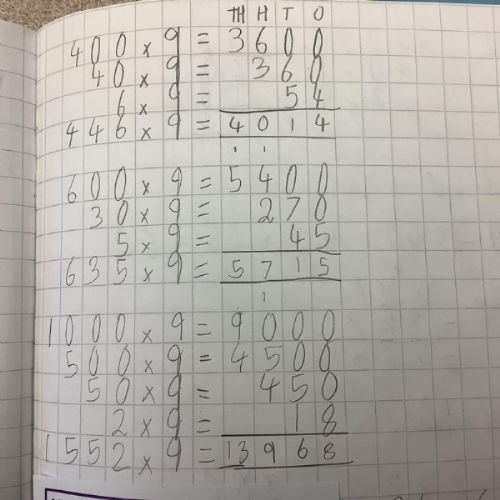 TH H T O
400 x 9 = 3600
40 x 9 = 360
6 x 9 = 54
446 x 9 = 4014
1 1
600 x 9 = 5400
30 x 9 = 270
5 x 9 = 45
635 x 9 = 5715
1
1000 x 9 = 9000
500 x 9 = 4500
50 x 9 = 450
2 x 9 = 18
1552 x 9 = 13968